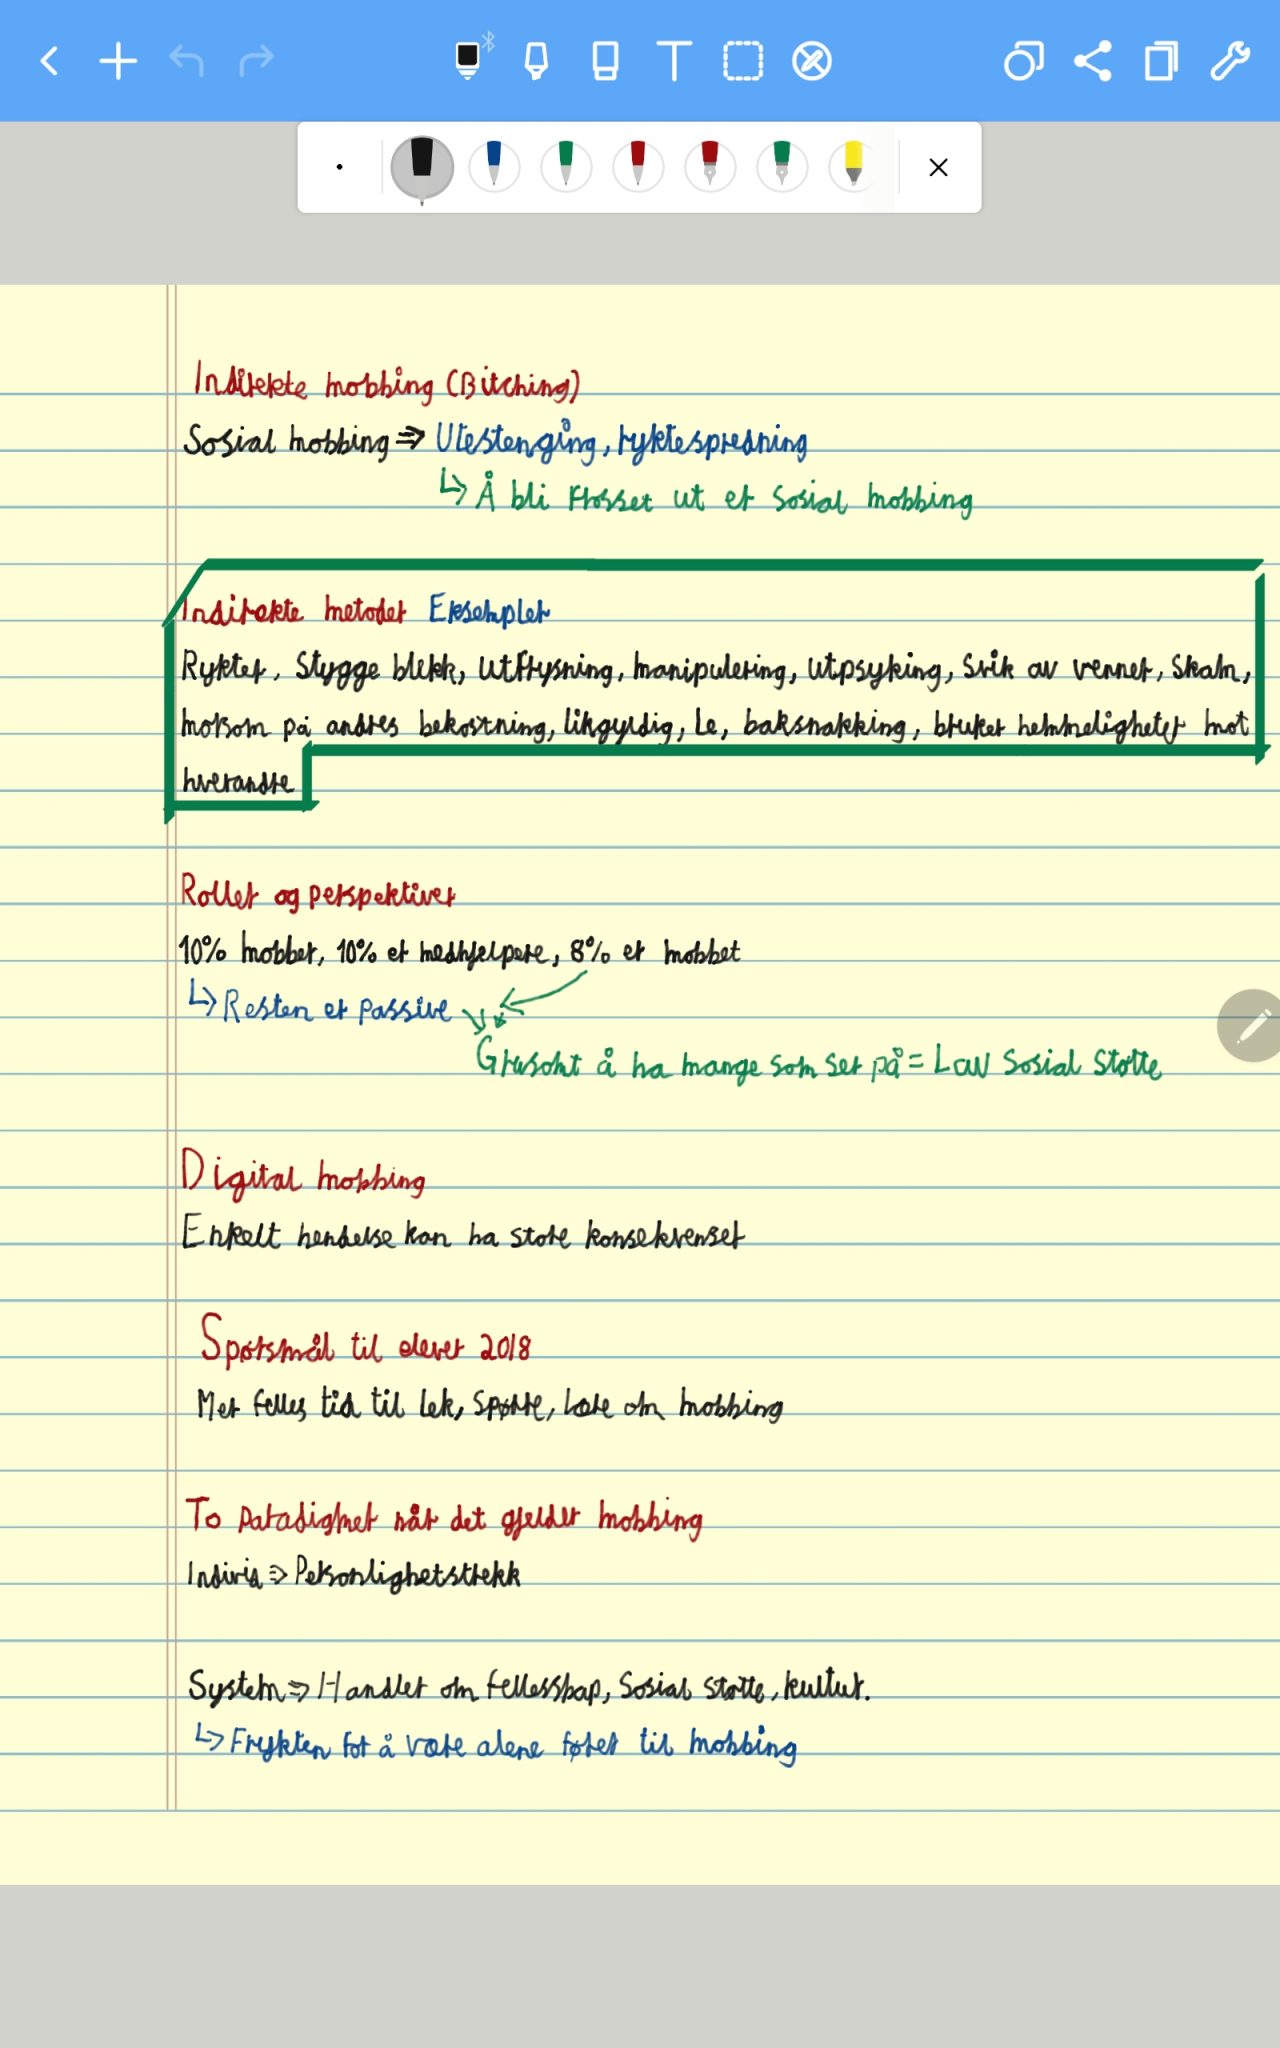 Indirekte mobbing (Bitching)
Sosial mobbing ⇒ Utestenging, ryktespredning
↳ Å bli frosset ut er sosial mobbing
Indirekte metoder Eksempler
Rykter, Stygge blikk, utfrysning, manipulering, utpsyking, svik av venner, skam,
morsom på andres bekostning, likgyldig, le, baksnakking, bruker hemmeligheter mot
hverandre
Roller og perspektiver
10% mobber, 10% er medhjelpere, 8% er mobbet
↳ Resten er passive
Grusomt å ha mange som ser på = Lav sosial støtte
Digital mobbing
Enkelt hendelse kan ha store konsekvenser
Spørsmål til elever 2018
Mer felles tid til lek, spørre, lære om mobbing
To paradigmer når det gjelder mobbing
Individ ⇒ Personlighetstrekk
System ⇒ Handler om fellesskap, Sosial støtte, kultur.
↳ Frykten for å være alene fører til mobbing